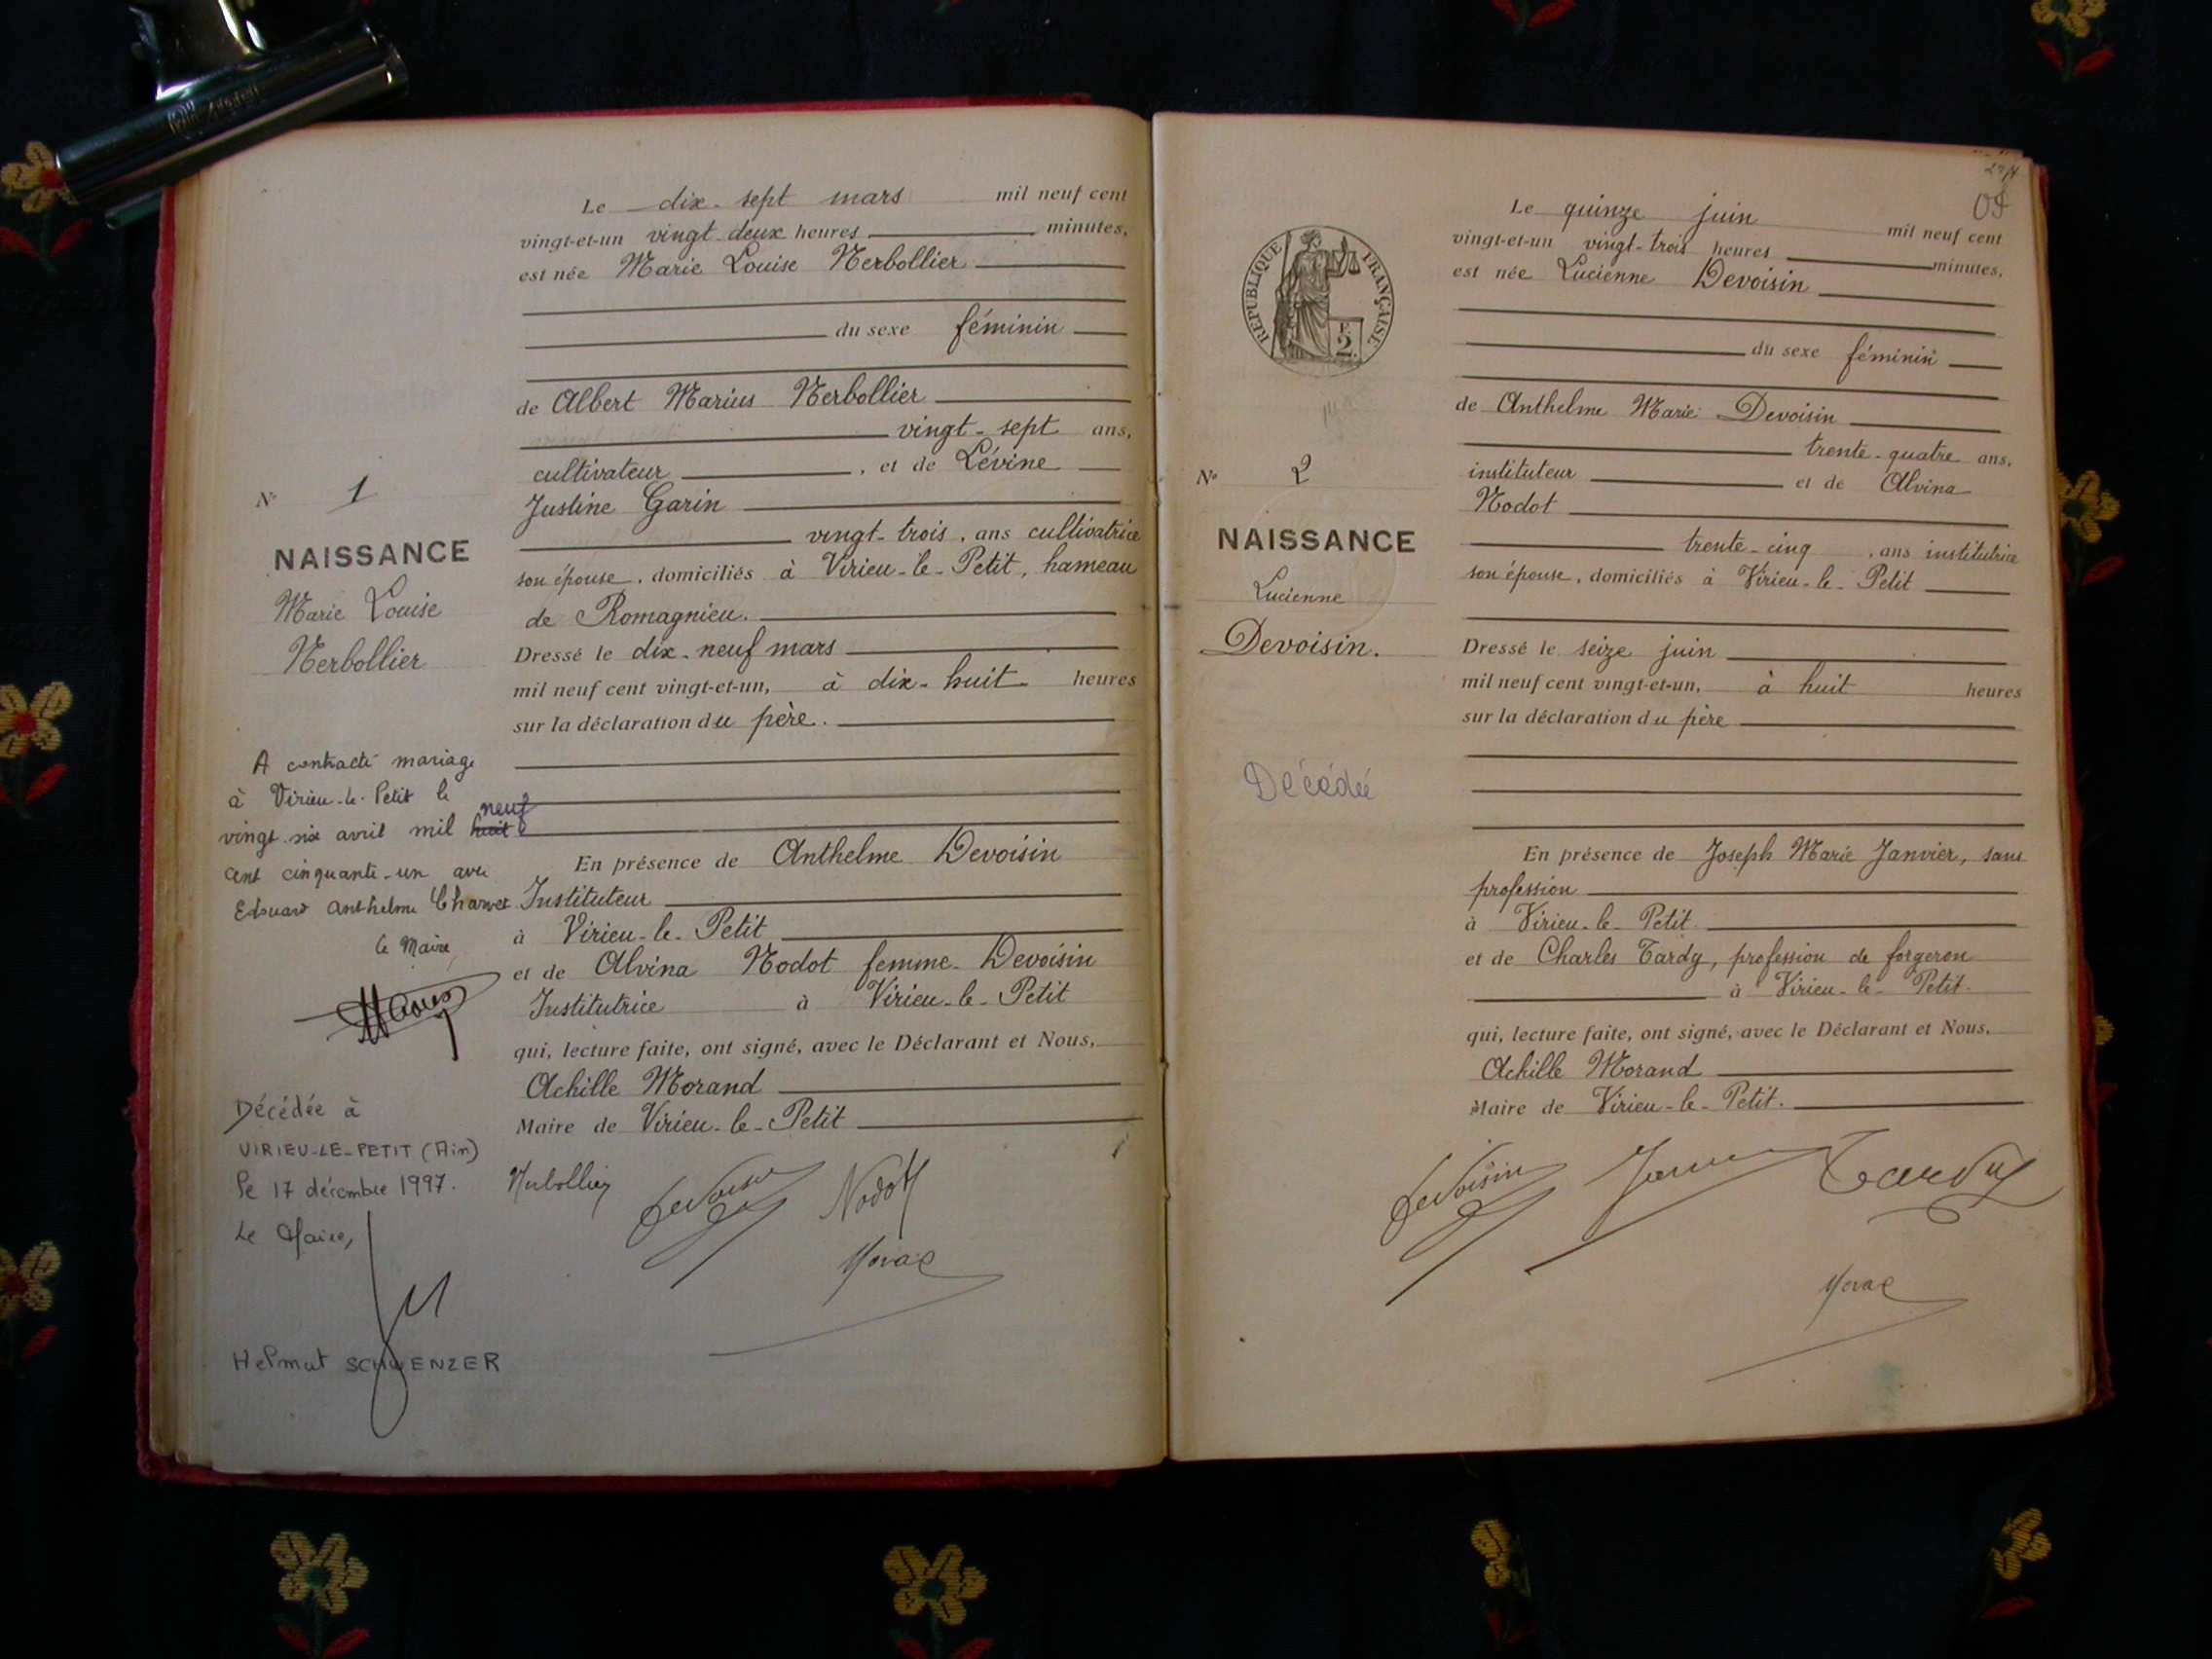 Le dix-sept mars mil neuf cent
vingt-et-un vingt deux heures minutes,
est née Marie Louise Nerbollier
du sexe féminin
de Albert Marius Nerbollier
vingt-sept ans,
cultivateur, et de Lévine
Justine Garin
vingt-trois, ans cultivatrice
son épouse, domiciliés à Virieu-le-Petit, hameau
de Romagnieu.
Dressé le dix-neuf mars
mil neuf cent vingt-et-un, à dix-huit heures
sur la déclaration du père.
En présence de Anthelme Devoisin
Instituteur
à Virieu-le-Petit
et de Alvina Nodot femme Devoisin
Institutrice à Virieu-le-Petit
qui, lecture faite, ont signé, avec le Déclarant et Nous,
Achille Morand
Maire de Virieu-le-Petit
Nerbollier
Devoisin
Nodot
No 1
NAISSANCE
Marie Louise
Nerbollier
A contracté mariage
à Virieu-le-Petit le
vingt six avril mil huit neuf
cent cinquante-un avec
Edouard Anthelme Charvet
le Maire,
Décédée à
VIRIEU-LE-PETIT (Ain)
le 17 décembre 1997.
Le Maire,
Helmut SCHWENZER
RÉPUBLIQUE FRANÇAISE
2
No 2
NAISSANCE
Lucienne
Devoisin.
Décédée
Le quinze juin mil neuf cent
vingt-et-un vingt-trois heures minutes,
est née Lucienne Devoisin
du sexe féminin
de Anthelme Marie Devoisin
trente-quatre ans,
instituteur et de Alvina
Nodot
trente-cinq, ans institutrice
son épouse, domiciliés à Virieu-le-Petit
Dressé le seize juin
mil neuf cent vingt-et-un, à huit heures
sur la déclaration du père
En présence de Joseph Marie Janvier, sans
profession
à Virieu-le-Petit.
et de Charles Tardy, profession de forgeron
à Virieu-le-Petit.
qui, lecture faite, ont signé, avec le Déclarant et Nous,
Achille Morand
Maire de Virieu-le-Petit.
Devoisin
Tardy